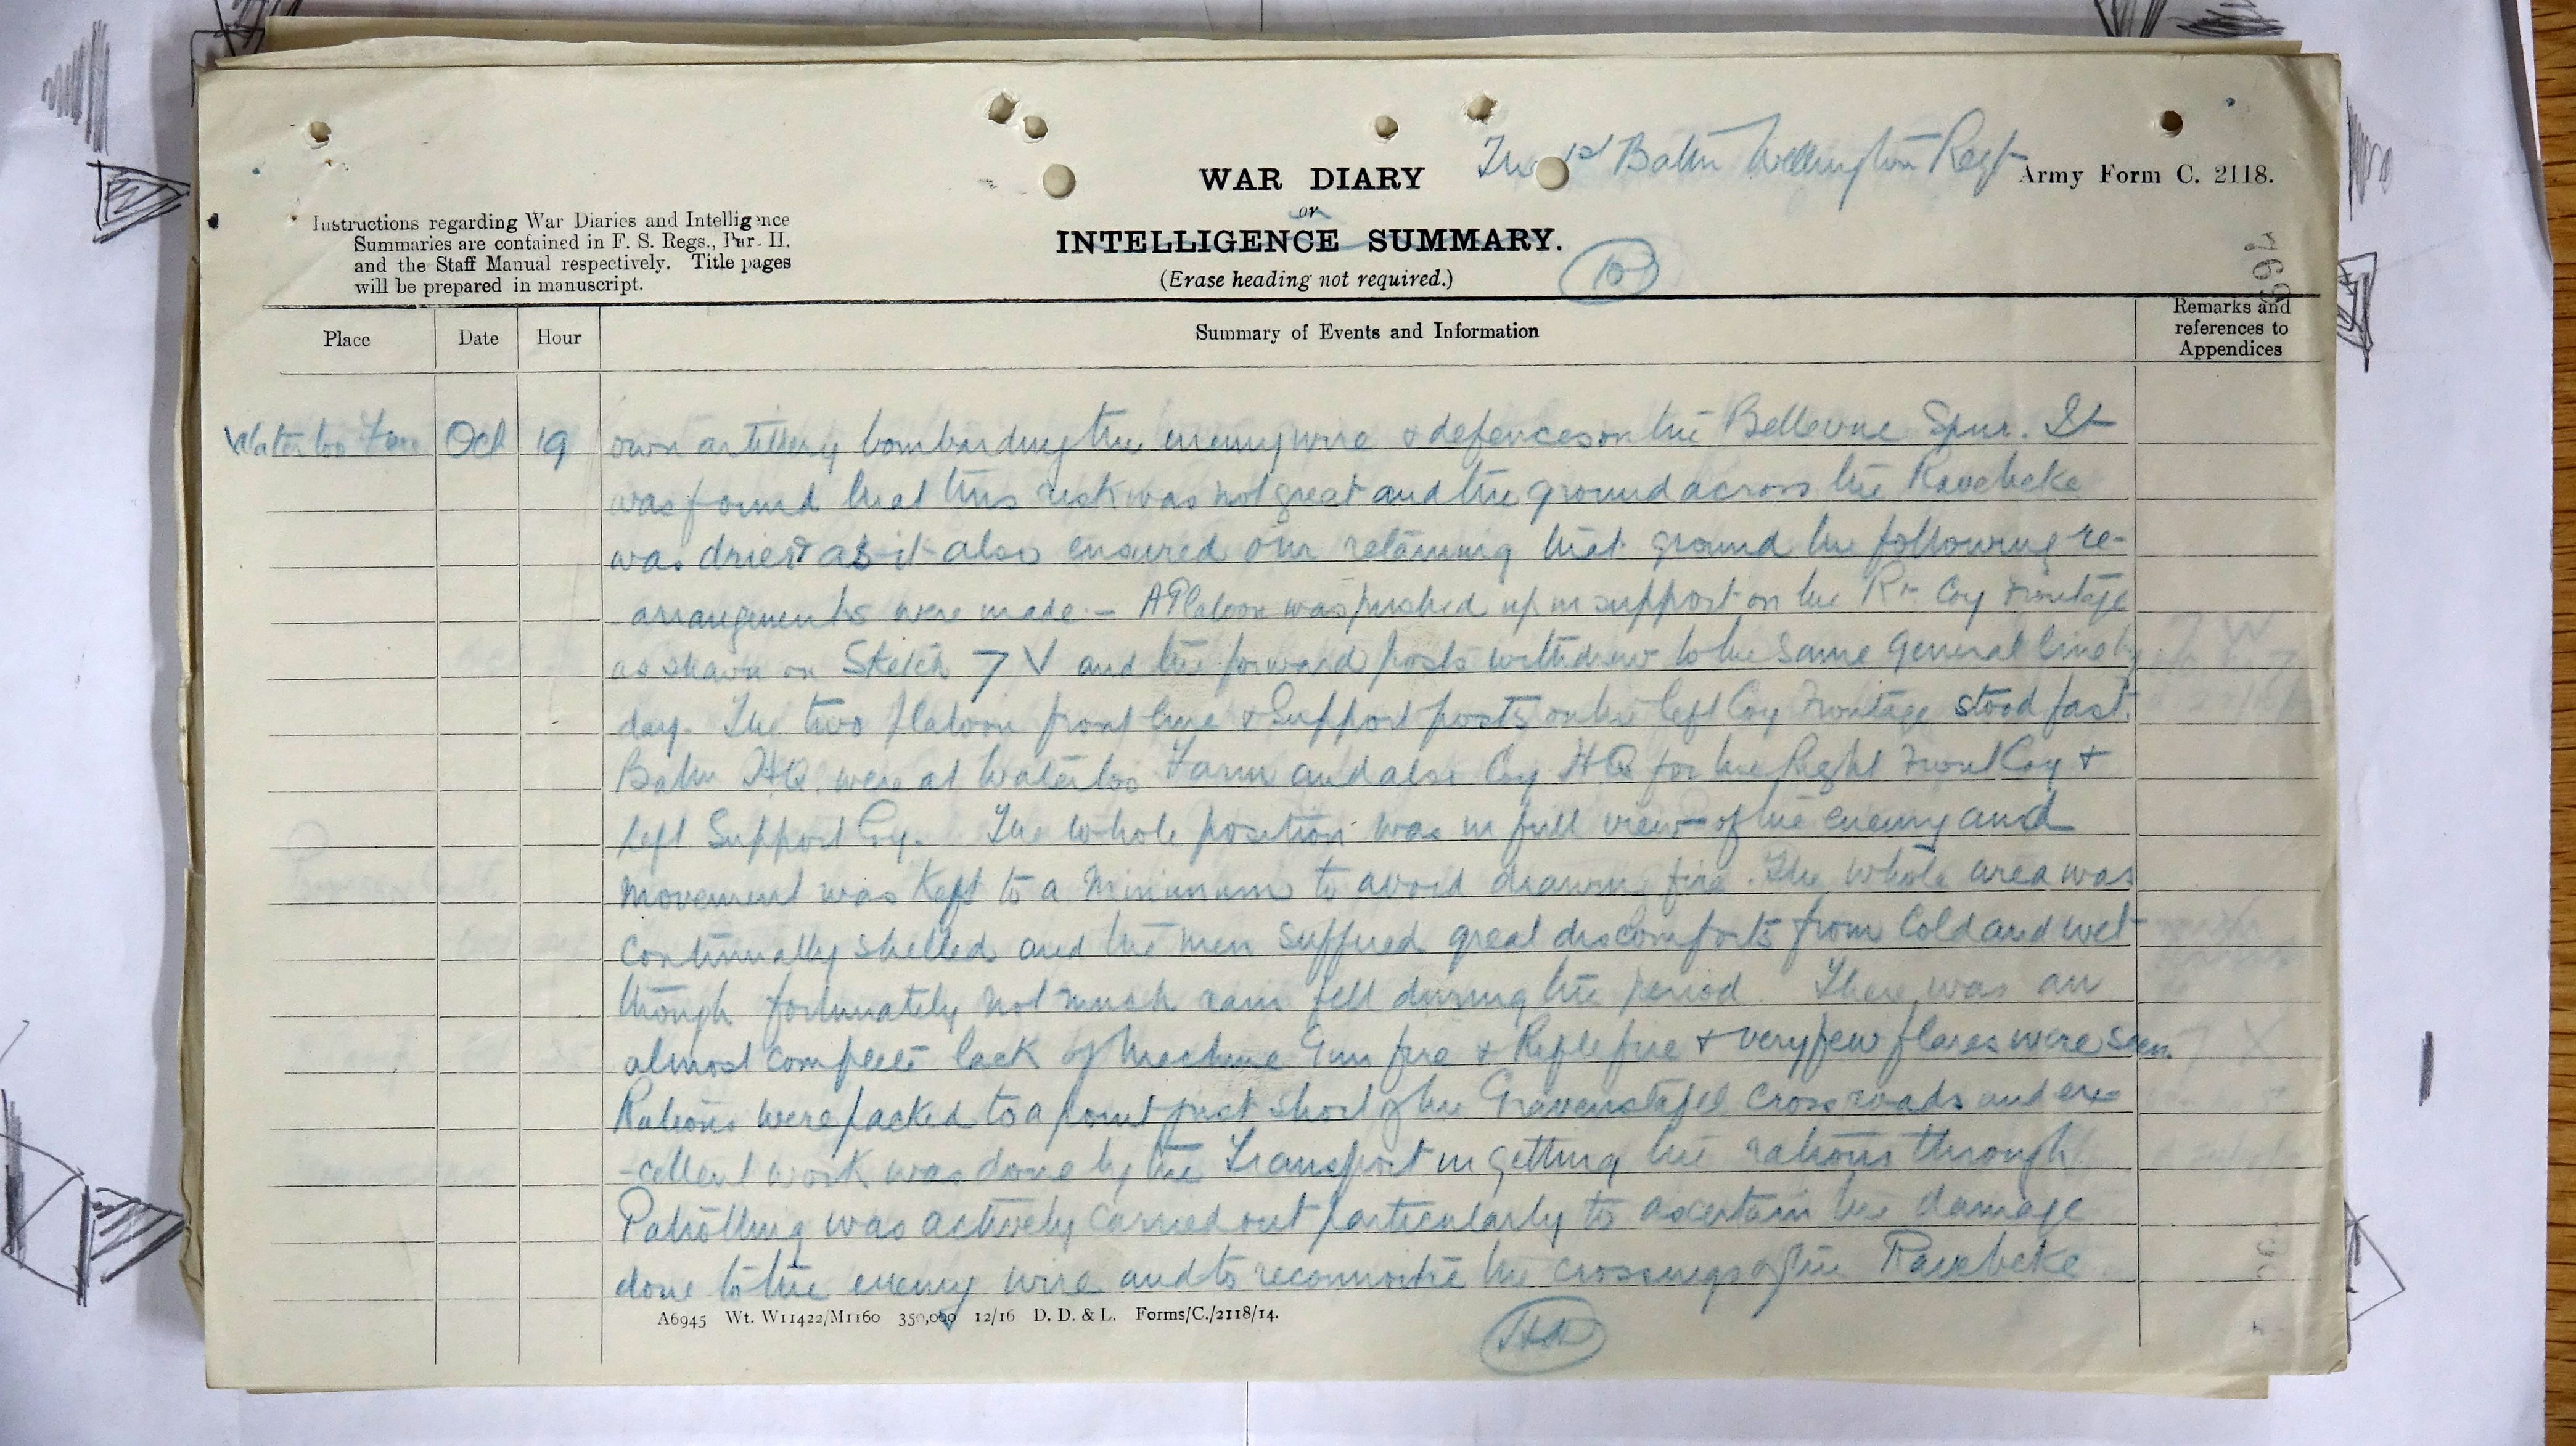 WAR DIARY
or
INTELLIGENCE SUMMARY.
(Erase heading not required.)
1st Battn Wellington Regt
Army Form C. 2118.
Instructions regarding War Diaries and Intelligence
Summaries are contained in F. S. Regs., Part II.
and the Staff Manual respectively. Title pages
will be prepared in manuscript.
Place Date Hour Summary of Events and Information Remarks and references to Appendices
Waterloo Farm Oct 19
own artillery bombarding the enemy wire & defences on the Bellevue Spur. It
was found that this risk was not great and the ground across the Ravebeke
was driest as it also ensured our retaining that ground the following re-
-arrangements were made :- A Platoon was pushed up in support on the Rt. Coy frontage
as shown on Sketch 7 V and the forward posts withdrew to the same general line by
day. The two platoon front line & Support posts on the left Coy frontage stood fast.
Battn H.Q. were at Waterloo Farm and also Coy H.Q for the Right Front Coy +
left Support Coy. The whole position was in full view of the enemy and
movement was kept to a minimum to avoid drawing fire. The whole area was
continually shelled and the men suffered great discomforts from cold and wet
though fortunately not much rain fell during the period. There was an
almost complete lack of Machine Gun fire & Rifle fire + very few flares were seen.
Rations were packed to a point just short of the Gravenstafel cross roads and ex-
-cellent work was done by the Transport in getting the rations through
Patrolling was actively carried out particularly to ascertain the damage
done to the enemy wire and to reconnoitre the crossings of the Ravebeke
A6945 Wt. W11422/M1160 350,000 12/16 D. D. & L. Forms/C./2118/14.